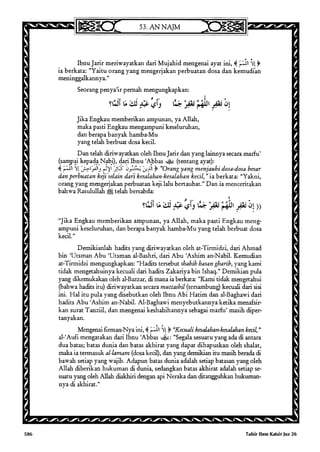 53. AN NAJM
Ibnu Jarir meriwayatkan dari Mujahid mengenai ayat ini, ﴾ إِلَّا اللَّمَمَ ﴿
ia berkata: "Yaitu orang yang mengerjakan perbuatan dosa dan kemudian
meninggalkannya."
Seorang penya'ir pernah mengungkapkan:
إِنْ تَغْفِرِ اللَّهُمَّ تَغْفِرْ جَمًّا وَأَيُّ عَبْدٍ لَكَ مَا أَلَمَّا؟
Jika Engkau memberikan ampunan, ya Allah,
maka pasti Engkau mengampuni keseluruhan,
dan berapa banyak hamba-Mu
yang telah berbuat dosa kecil.
Dan telah diriwayatkan oleh Ibnu Jarir dan yang lainnya secara marfu'
(sampai kepada Nabi), dari Ibnu 'Abbas (tentang ayat):
﴾ الَّذِينَ يَجْتَنِبُونَ كَبَائِرَ الْإِثْمِ وَالْفَوَاحِشَ إِلَّا اللَّمَمَ ﴿ "Orang yang menjauhi dosa-dosa besar
dan perbuatan keji selain dari kesalahan-kesalahan kecil," ia berkata: "Yakni,
orang yang mengerjakan perbuatan keji lalu bertaubat." Dan ia menceritakan
bahwa Rasulullah ﷺ telah bersabda:
(( إِنْ تَغْفِرِ اللَّهُمَّ تَغْفِرْ جَمًّا وَأَيُّ عَبْدٍ لَكَ مَا أَلَمَّا؟ ))
"Jika Engkau memberikan ampunan, ya Allah, maka pasti Engkau meng-
ampuni keseluruhan, dan berapa banyak hamba-Mu yang telah berbuat dosa
kecil."
Demikianlah hadits yang diriwayatkan oleh at-Tirmidzi, dari Ahmad
bin 'Utsman Abu 'Utsman al-Bashri, dari Abu 'Ashim an-Nabil. Kemudian
at-Tirmidzi mengungkapkan: "Hadits tersebut shahih hasan gharib, yang kami
tidak mengetahuinya kecuali dari hadits Zakariya bin Ishaq." Demikian pula
yang dikemukakan oleh al-Bazzar, di mana ia berkata: "Kami tidak mengetahui
(bahwa hadits itu) diriwayatkan secara muttashil (tersambung) kecuali dari sisi
ini. Hal itu pula yang disebutkan oleh Ibnu Abi Hatim dan al-Baghawi dari
hadits Abu 'Ashim an-Nabil. Al-Baghawi menyebutkannya ketika menafsir-
kan surat Tanziil, dan mengenai keshahihannya sebagai marfu' masih diper-
tanyakan.
Mengenai firman-Nya ini, ﴾ إِلَّا اللَّمَمَ ﴿ "Kecuali kesalahan-kesalahan kecil,"
al-'Aufi mengatakan dari Ibnu 'Abbas: "Segala sesuatu yang ada di antara
dua batas; batas dunia dan batas akhirat yang dapat dihapuskan oleh shalat,
maka ia termasuk al-lamam (dosa kecil), dan yang demikian itu masih berada di
bawah setiap yang wajib. Adapun batas dunia adalah setiap batasan yang oleh
Allah diberikan hukuman di dunia, sedangkan batas akhirat adalah setiap se-
suatu yang oleh Allah diakhiri dengan api Neraka dan ditangguhkan hukuman-
nya di akhirat."
586
Tafsir Ibnu Katsir Juz 26